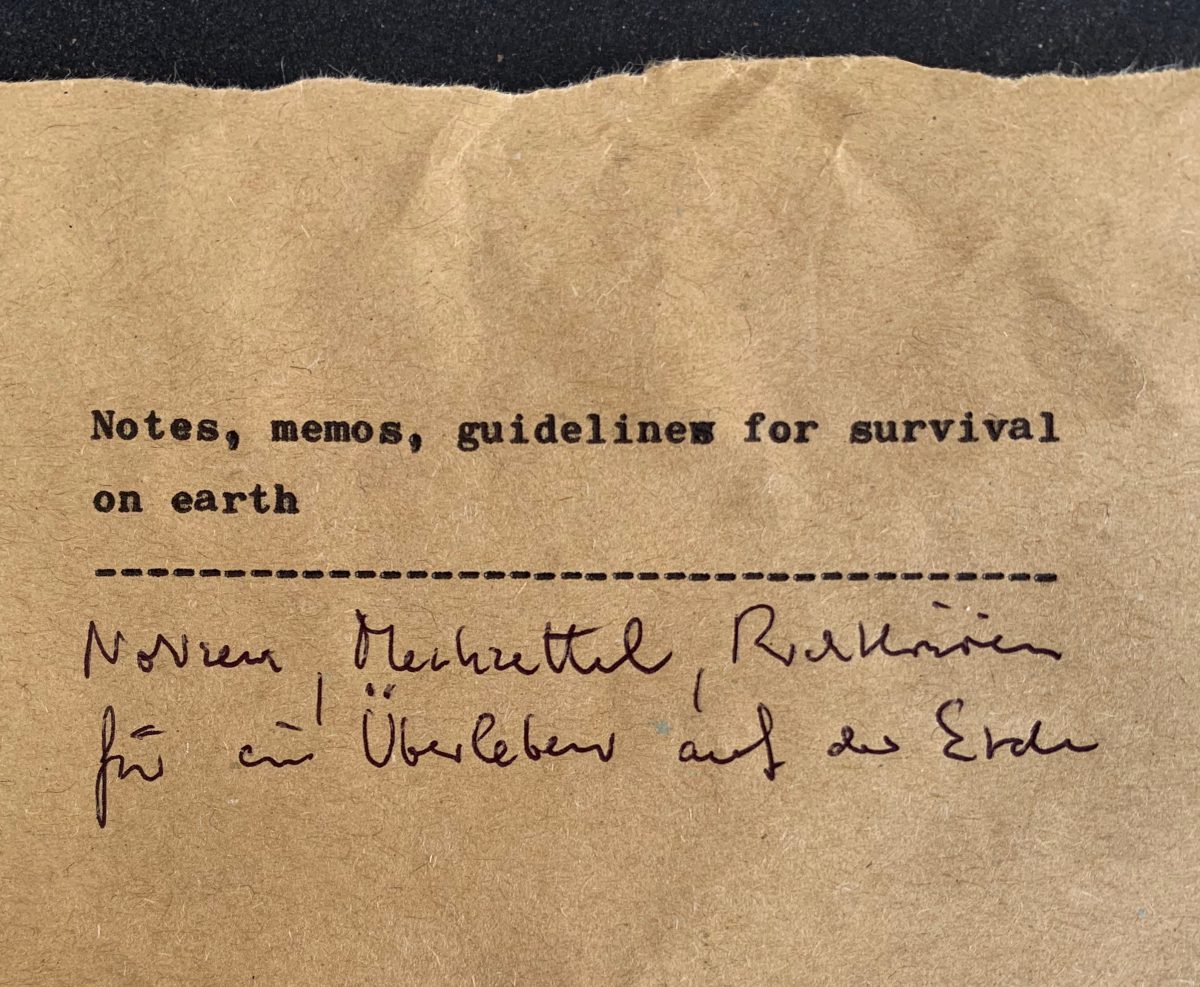 Notes, memos, guidelines for survival
on earth
-------------------------------------
Notizen, Merkzettel, Richtlinien
für ein Überleben auf der Erde